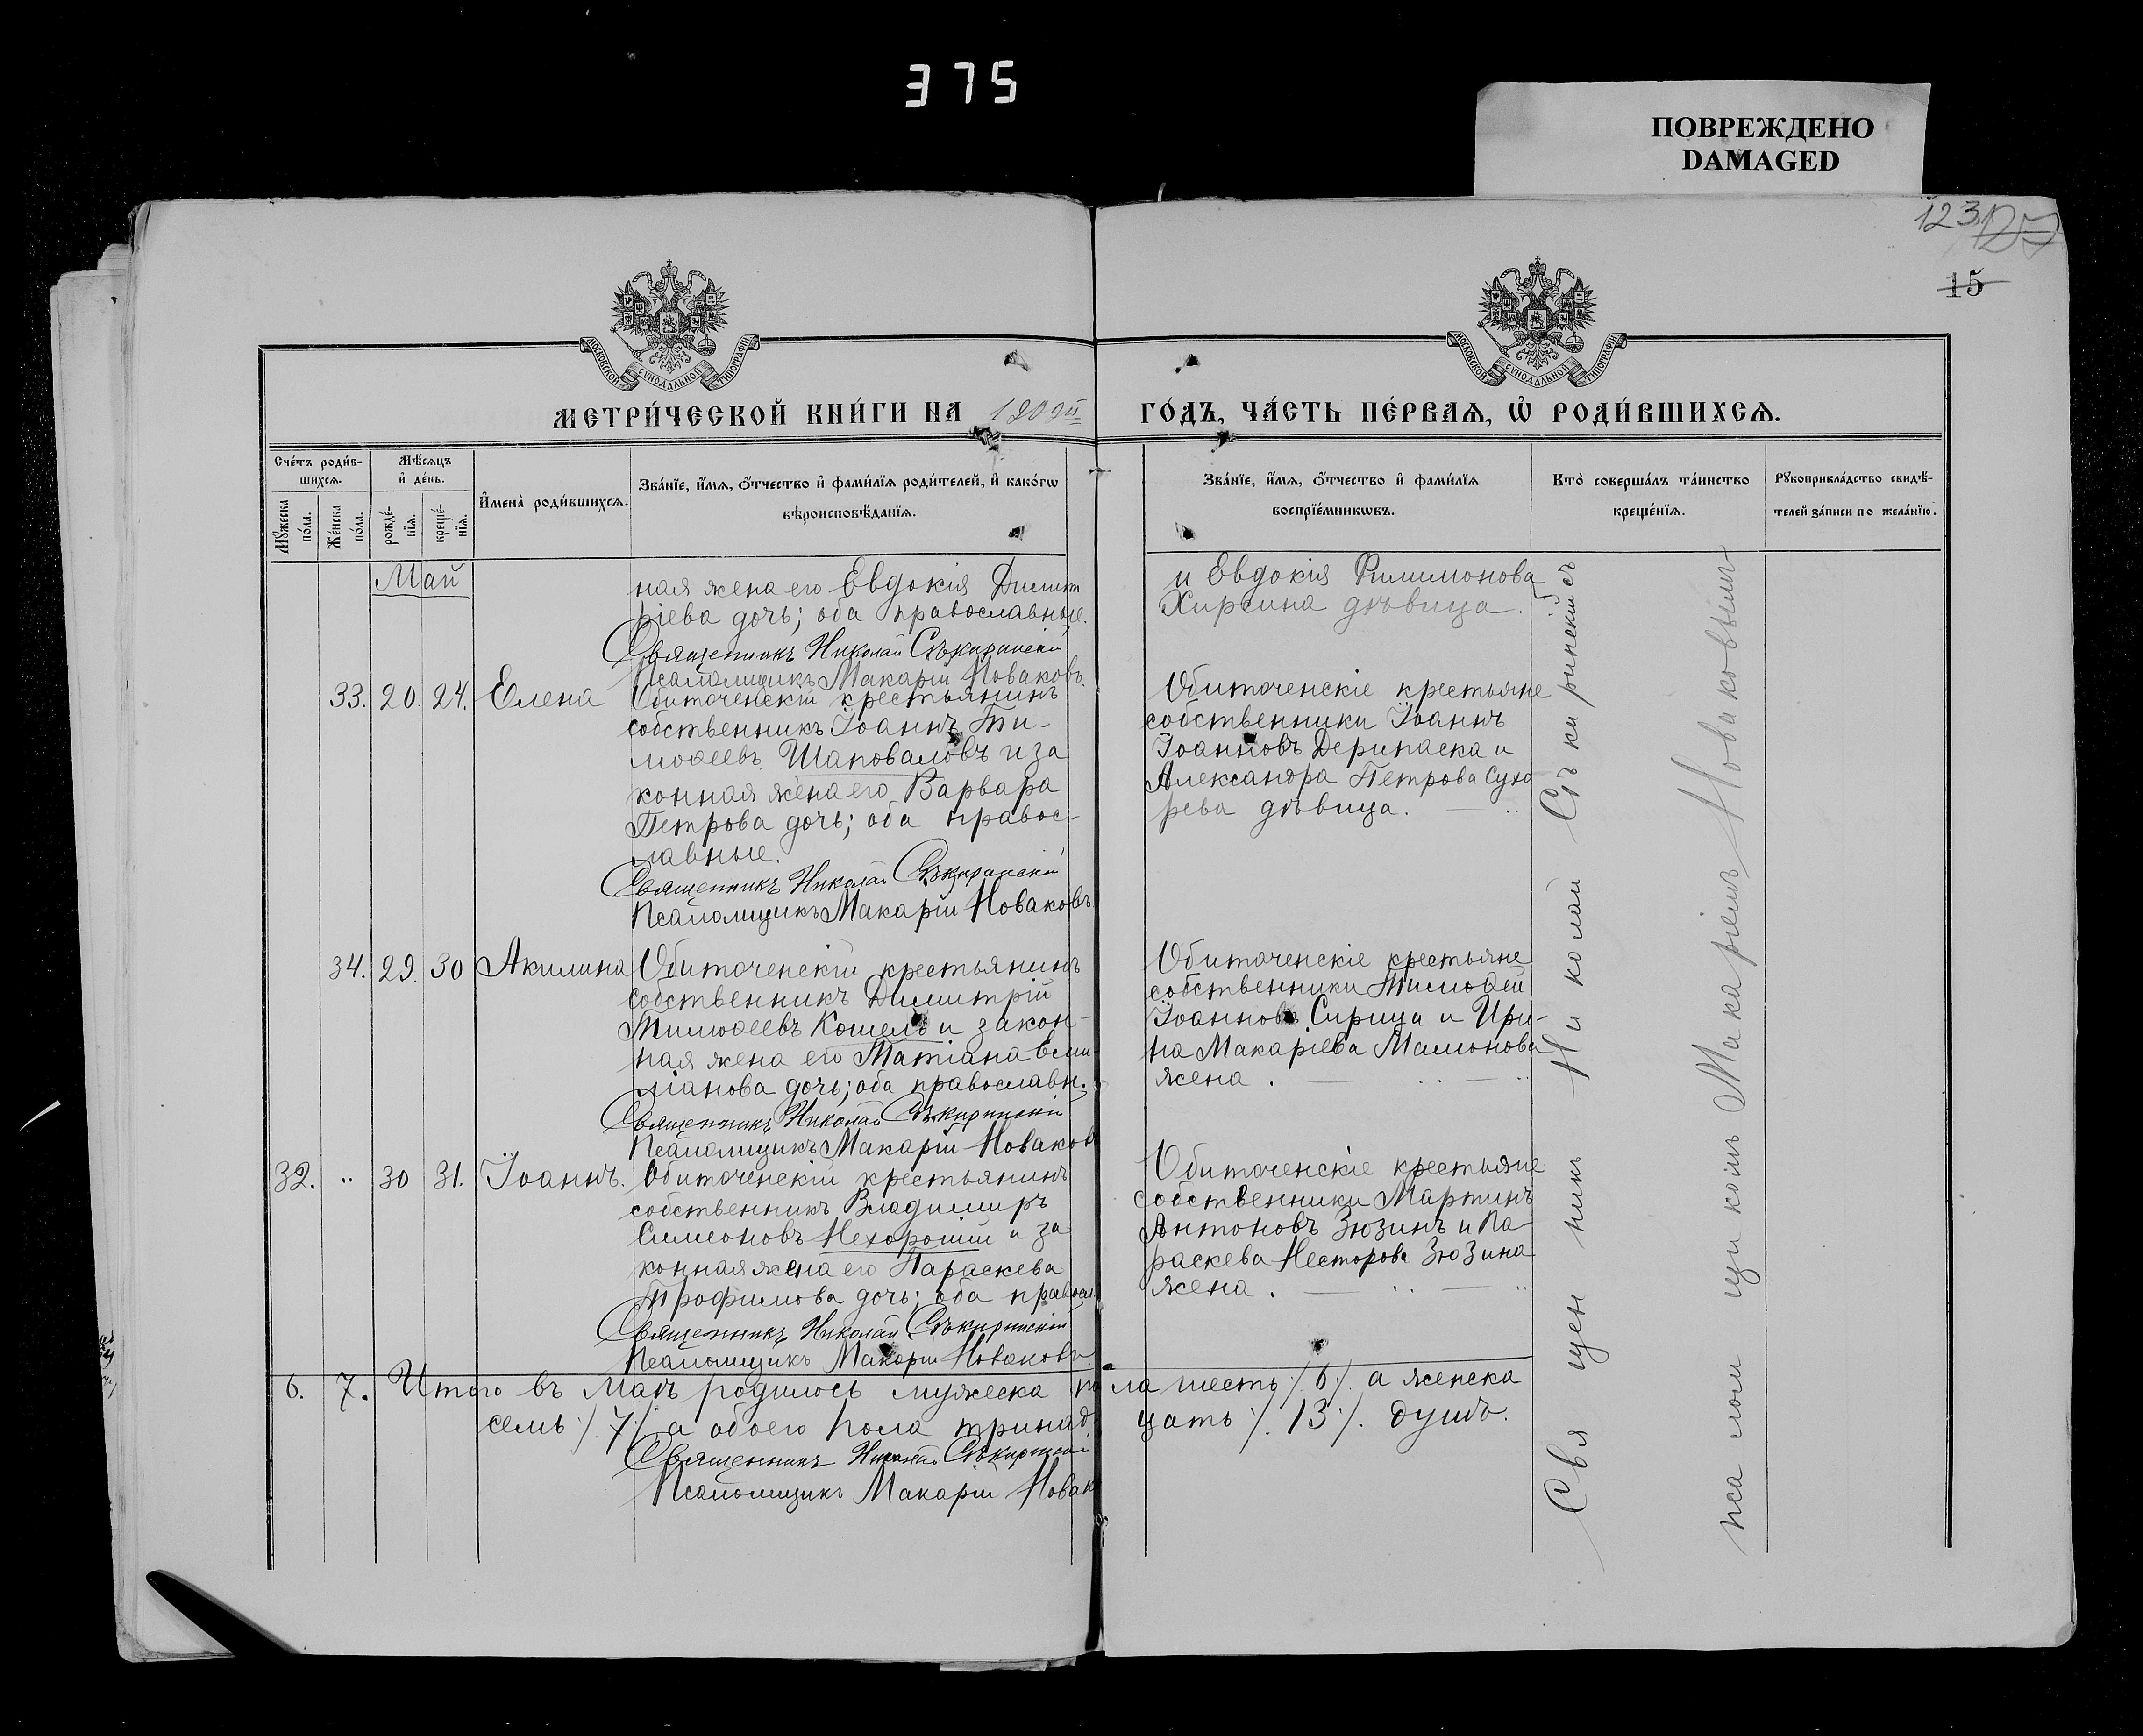 375
ПОВРЕЖДЕНО
DAMAGED
123
15
МОСКОВСКОЙ СУНОДАЛЬНОЙ ТИПОГРАФІИ
МОСКОВСКОЙ СУНОДАЛЬНОЙ ТИПОГРАФІИ
МЕТРИ́ЧЕСКОЙ КНИ́ГИ НА
ГО́ДЪ, ЧА́СТЬ ПЕ́РВАѦ, Ѡ҆ РОДИ́ВШИХСѦ.
Сче́тъ роди́в-
шихсѧ.
Мѣ́сѧцъ
и҆ де́нь.
Мꙋ́жеска по́ла.
Же́нска по́ла.
рожде́-нїѧ.
креще́-нїѧ.
И҆мена̀ роди́вшихсѧ.
Зва́нїе, и҆́мѧ, ѻ҆́тчество и҆ фами́лїѧ роди́телей, и҆ како́гѡ
вѣроисповѣ́данїѧ.
Зва́нїе, и҆́мѧ, ѻ҆́тчество и҆ фами́лїѧ
воспрїе́мникѡвъ.
Кто̀ соверша́лъ та́инство
креще́нїѧ.
Рꙋкоприкла́дство свидѣ́-
телей за́писи по жела́нїю.
Май
ная жена его Евдокія Димит
ріева дочь; оба православные.
Священникъ Николай Сѣкиринскій
Псаломщикъ Макарій Новаковъ.
и Евдокія Филимонова
Хирсина дѣвица.
33. 20. 24. Елена
Обиточенскій крестьянинъ
собственникъ Іоаннъ Ти-
моѳеевъ Шаповаловъ и за
конная жена его Варвара
Петрова дочь; оба правос-
лавные.
Священникъ Николай Сѣкиринскій
Псаломщикъ Макарій Новаковъ
Обиточенскіе крестьяне
собственники Іоаннъ
Іоанновъ Дерипаска и
Александра Петрова Сухо
рева дѣвица.
34. 29. 30 Акилина
Обиточенскій крестьянинъ
собственникъ Димитрій
Тимоѳеевъ Кошель и закон-
ная жена его Татіана Еми-
ліанова дочь; оба православн.
Священникъ Николай Сѣкиринскій
Псаломщикъ Макарій Новаков
Обиточенскіе крестьяне
собственники Тимоѳей
Іоанновъ Сирица и Ири-
на Макаріева Мамонова
жена.
32. „ 30 31. Іоаннъ.
Обиточенскій крестьянинъ
собственникъ Владимиръ
Симеоновъ Нехорошій и за
конная жена его Параскева
Трофимова дочь; оба правосл
Священникъ Николай Сѣкиринскій
Псаломщикъ Макарій Новаковъ
Обиточенскіе крестьяне
собственники Мартинъ
Антоновъ Зюзинъ и Па-
раскева Несторова Зюзина
жена.
Священникъ Николай Сѣкиринскій съ
псаломщикомъ Макаріемъ Новаковымъ
6. 7. Итого въ Маѣ родилось мужеска пола шесть ./6/. а женска
семь ./7/. а обоего пола тринадцать ./.13./. душъ.
Священникъ Николай Сѣкиринскій
Псаломщикъ Макарій Новак